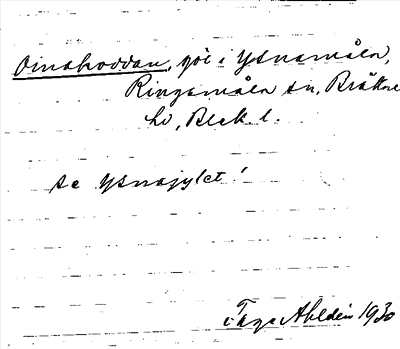 Ornakoddan, göl i Ysnamåla,
Ringamåla sn, Bräkne
hd, Blek. l.
se Ysnagylet!
Tage Ahldén 1930